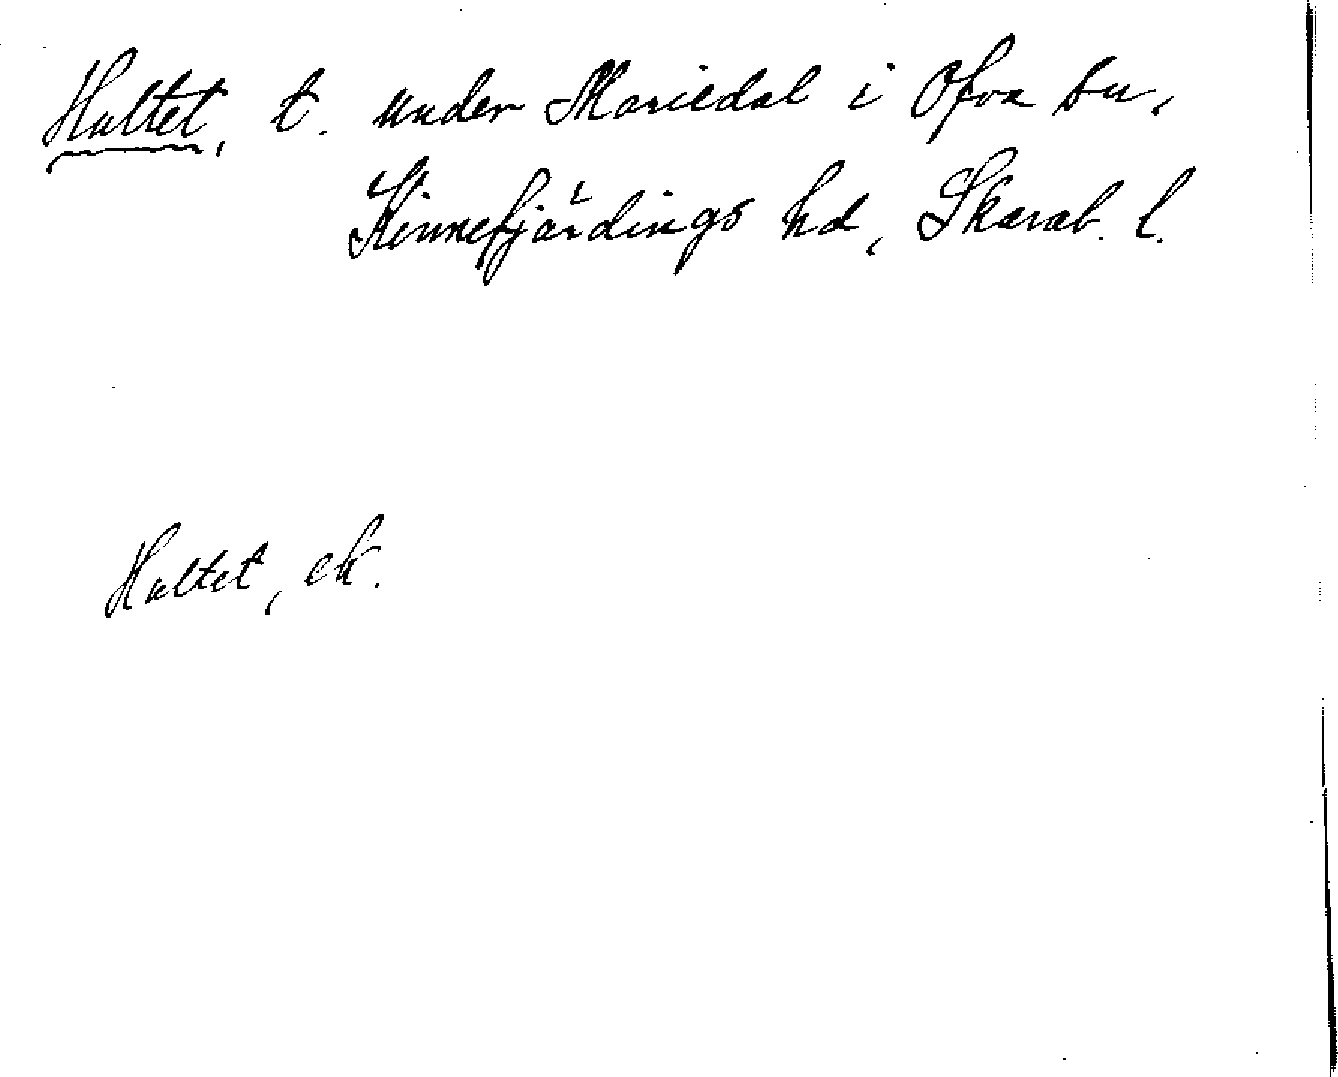 Hultet, t. under Mariedal i Ofva sn,
Kinnefjärdings hd, Skarab. l.
Hultet, ek.